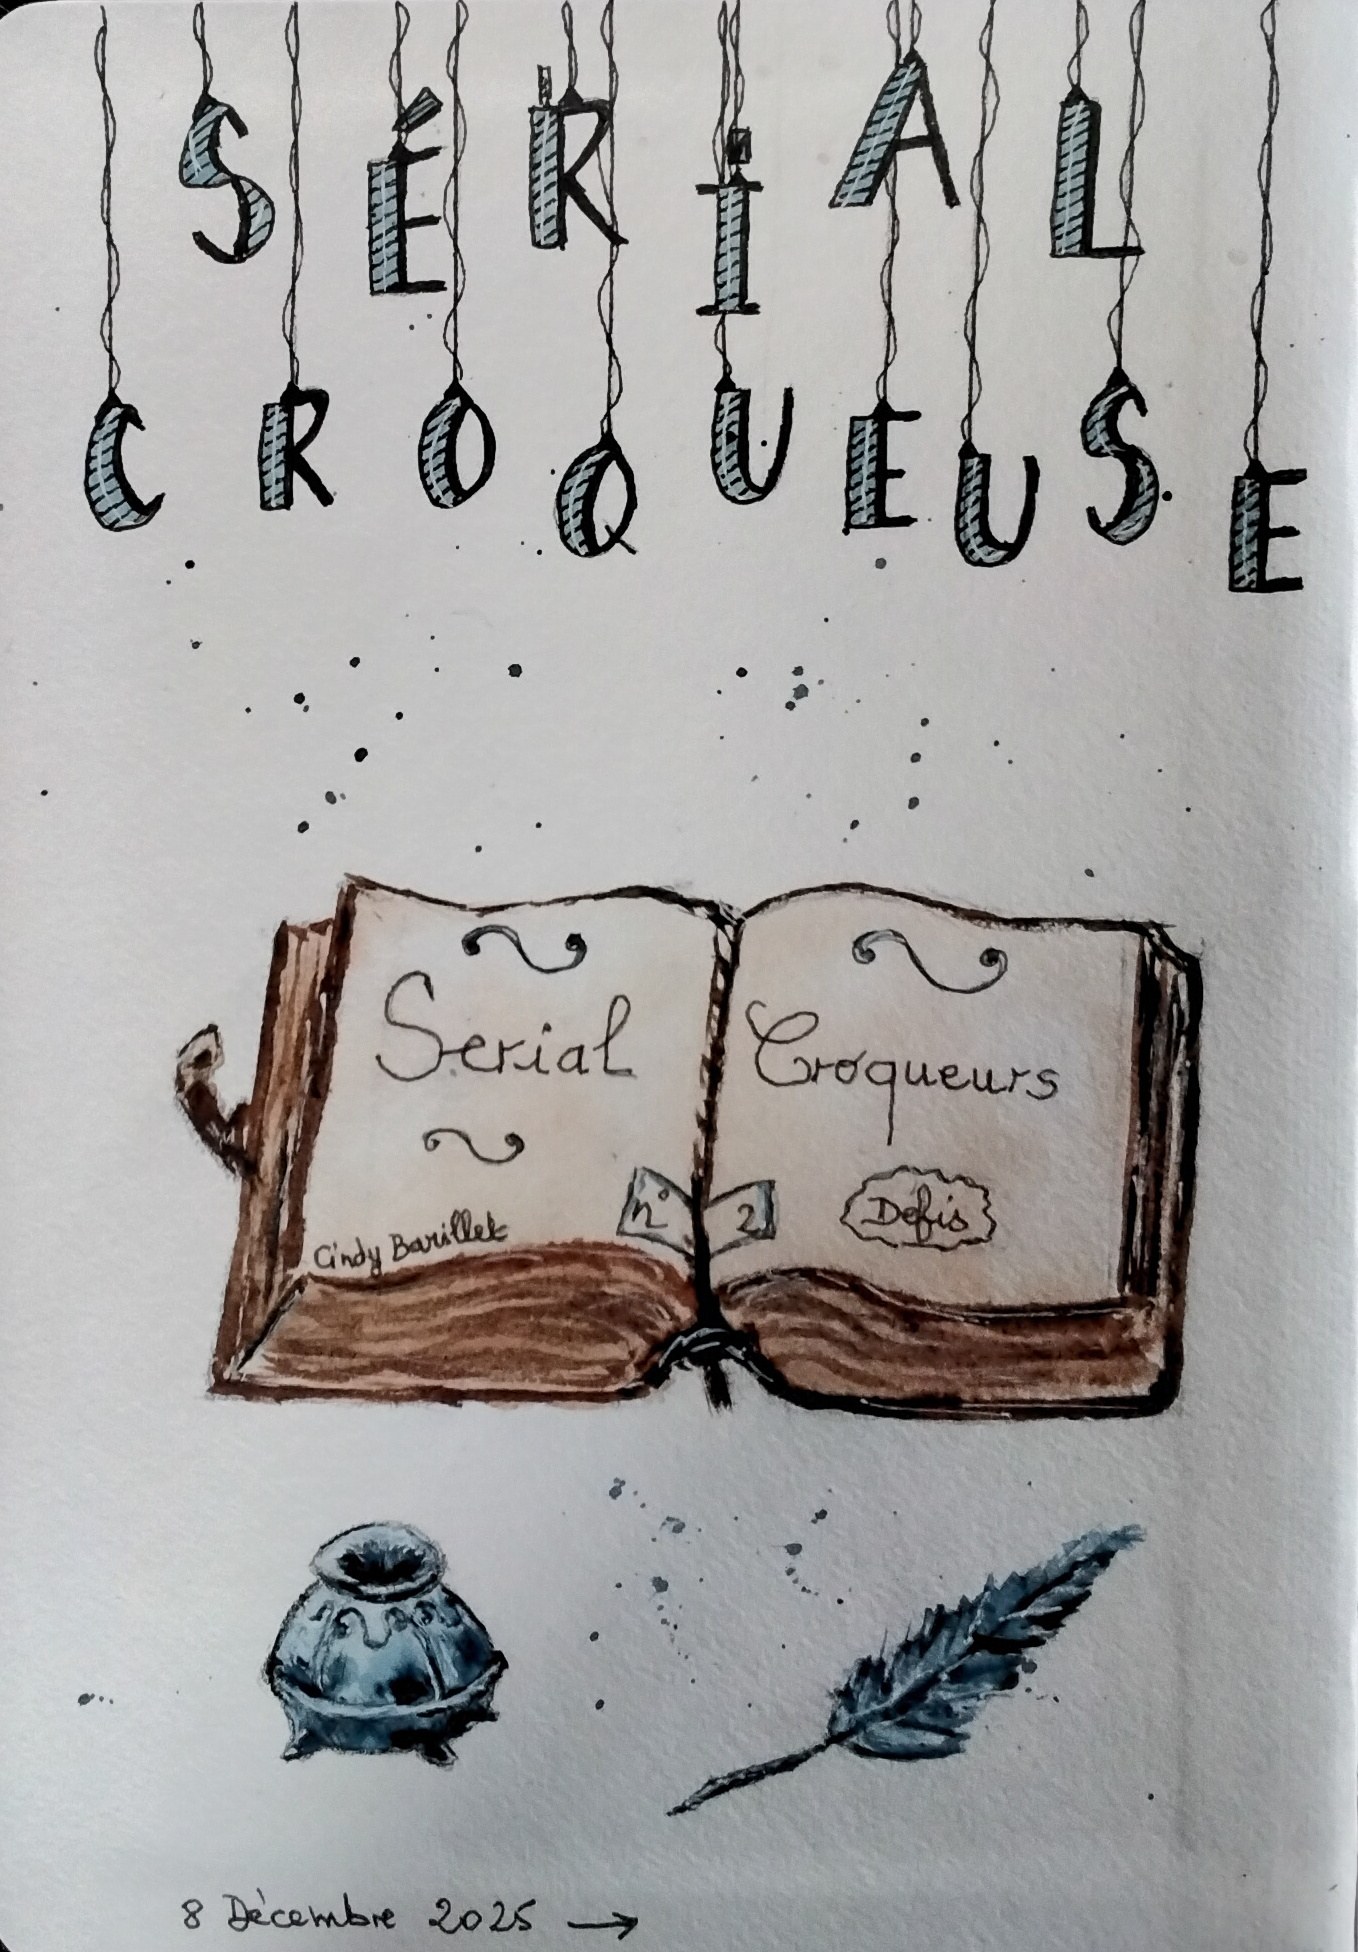 SÉRiAL
CROQUEUSE
Serial
Croqueurs
n° 2
Défis
Cindy Barillet
8 Décembre 2025 →